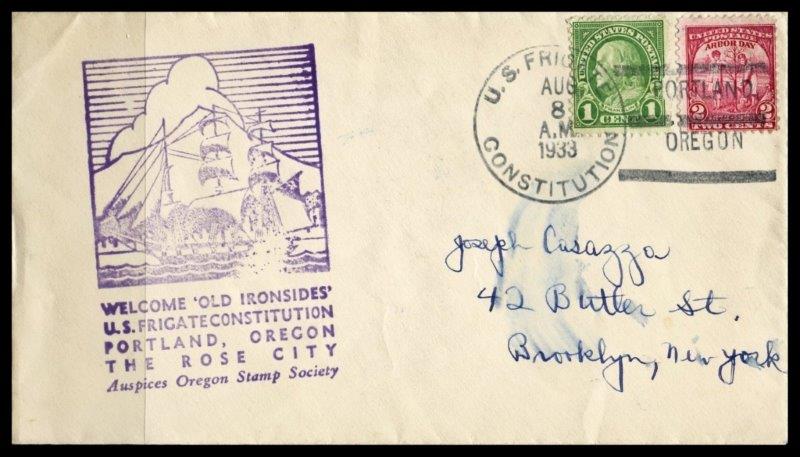 WELCOME 'OLD IRONSIDES'
U.S. FRIGATE CONSTITUTION
PORTLAND, OREGON
THE ROSE CITY
Auspices Oregon Stamp Society
U.S. FRIGATE
AUG
8
A.M.
1933
CONSTITUTION
UNITED STATES POSTAGE
1 1
CENT
UNITED STATES
POSTAGE
ARBOR DAY
2 2
TWO CENTS
PORTLAND,
OREGON
Joseph Casazza
42 Butler St.
Brooklyn, New York